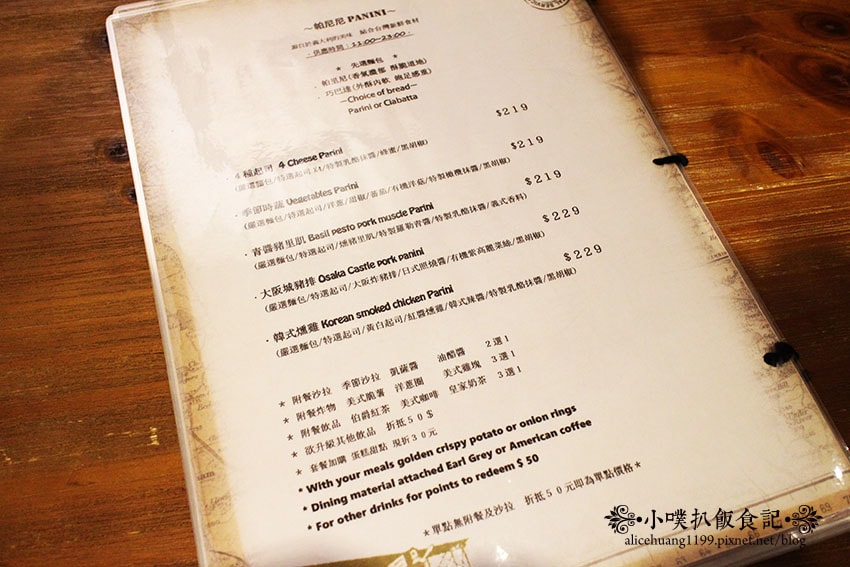 ～帕尼尼 PANINI～
源自於義大利的美味 結合台灣新鮮食材
供應時間：11:00~23:00：
★ 先選麵包 ★
．帕里尼(香氣濃郁 酥脆道地)
．巧巴達(外酥內軟 飽足感重)
～Choice of bread～
Parini or Ciabatta
$219
．4種起司 4 Cheese Parini $219
(嚴選麵包/特選起司x4/特製乳酪抹醬/蜂蜜/黑胡椒)
．季節時蔬 Vegetables Parini $219
(嚴選麵包/特選起司/洋蔥/甜椒/蕃茄/有機洋菇/特製橄欖抹醬/黑胡椒)
．青醬豬里肌 Basil pesto pork muscle Parini $229
(嚴選麵包/特選起司/燻豬里肌/特製羅勒青醬/特製乳酪抹醬/義式香料)
．大阪城豬排 Osaka Castle pork panini $229
(嚴選麵包/特選起司/大阪炸豬排/日式照燒醬/有機紫高麗菜絲/黑胡椒)
．韓式燻雞 Korean smoked chicken Parini
(嚴選麵包/特選起司/黃白起司/紅醬燻雞/韓式辣醬/特製乳酪抹醬/黑胡椒)
★ 附餐沙拉 季節沙拉 凱薩醬 油醋醬 2選1
★ 附餐炸物 美式脆薯 洋蔥圈 美式雞塊 3選1
★ 附餐飲品 伯爵紅茶 美式咖啡 皇家奶茶 3選1
★ 欲升級其他飲品 折抵50$
★ 套餐加購 蛋糕甜點 現折30元
* With your meals golden crispy potato or onion rings
* Dining material attached Earl Grey or American coffee
* For other drinks for points to redeem $ 50
★單點無附餐及沙拉 折抵50元即為單點價格★
小噗扒飯食記
alicehuang1199.pixnet.net/blog